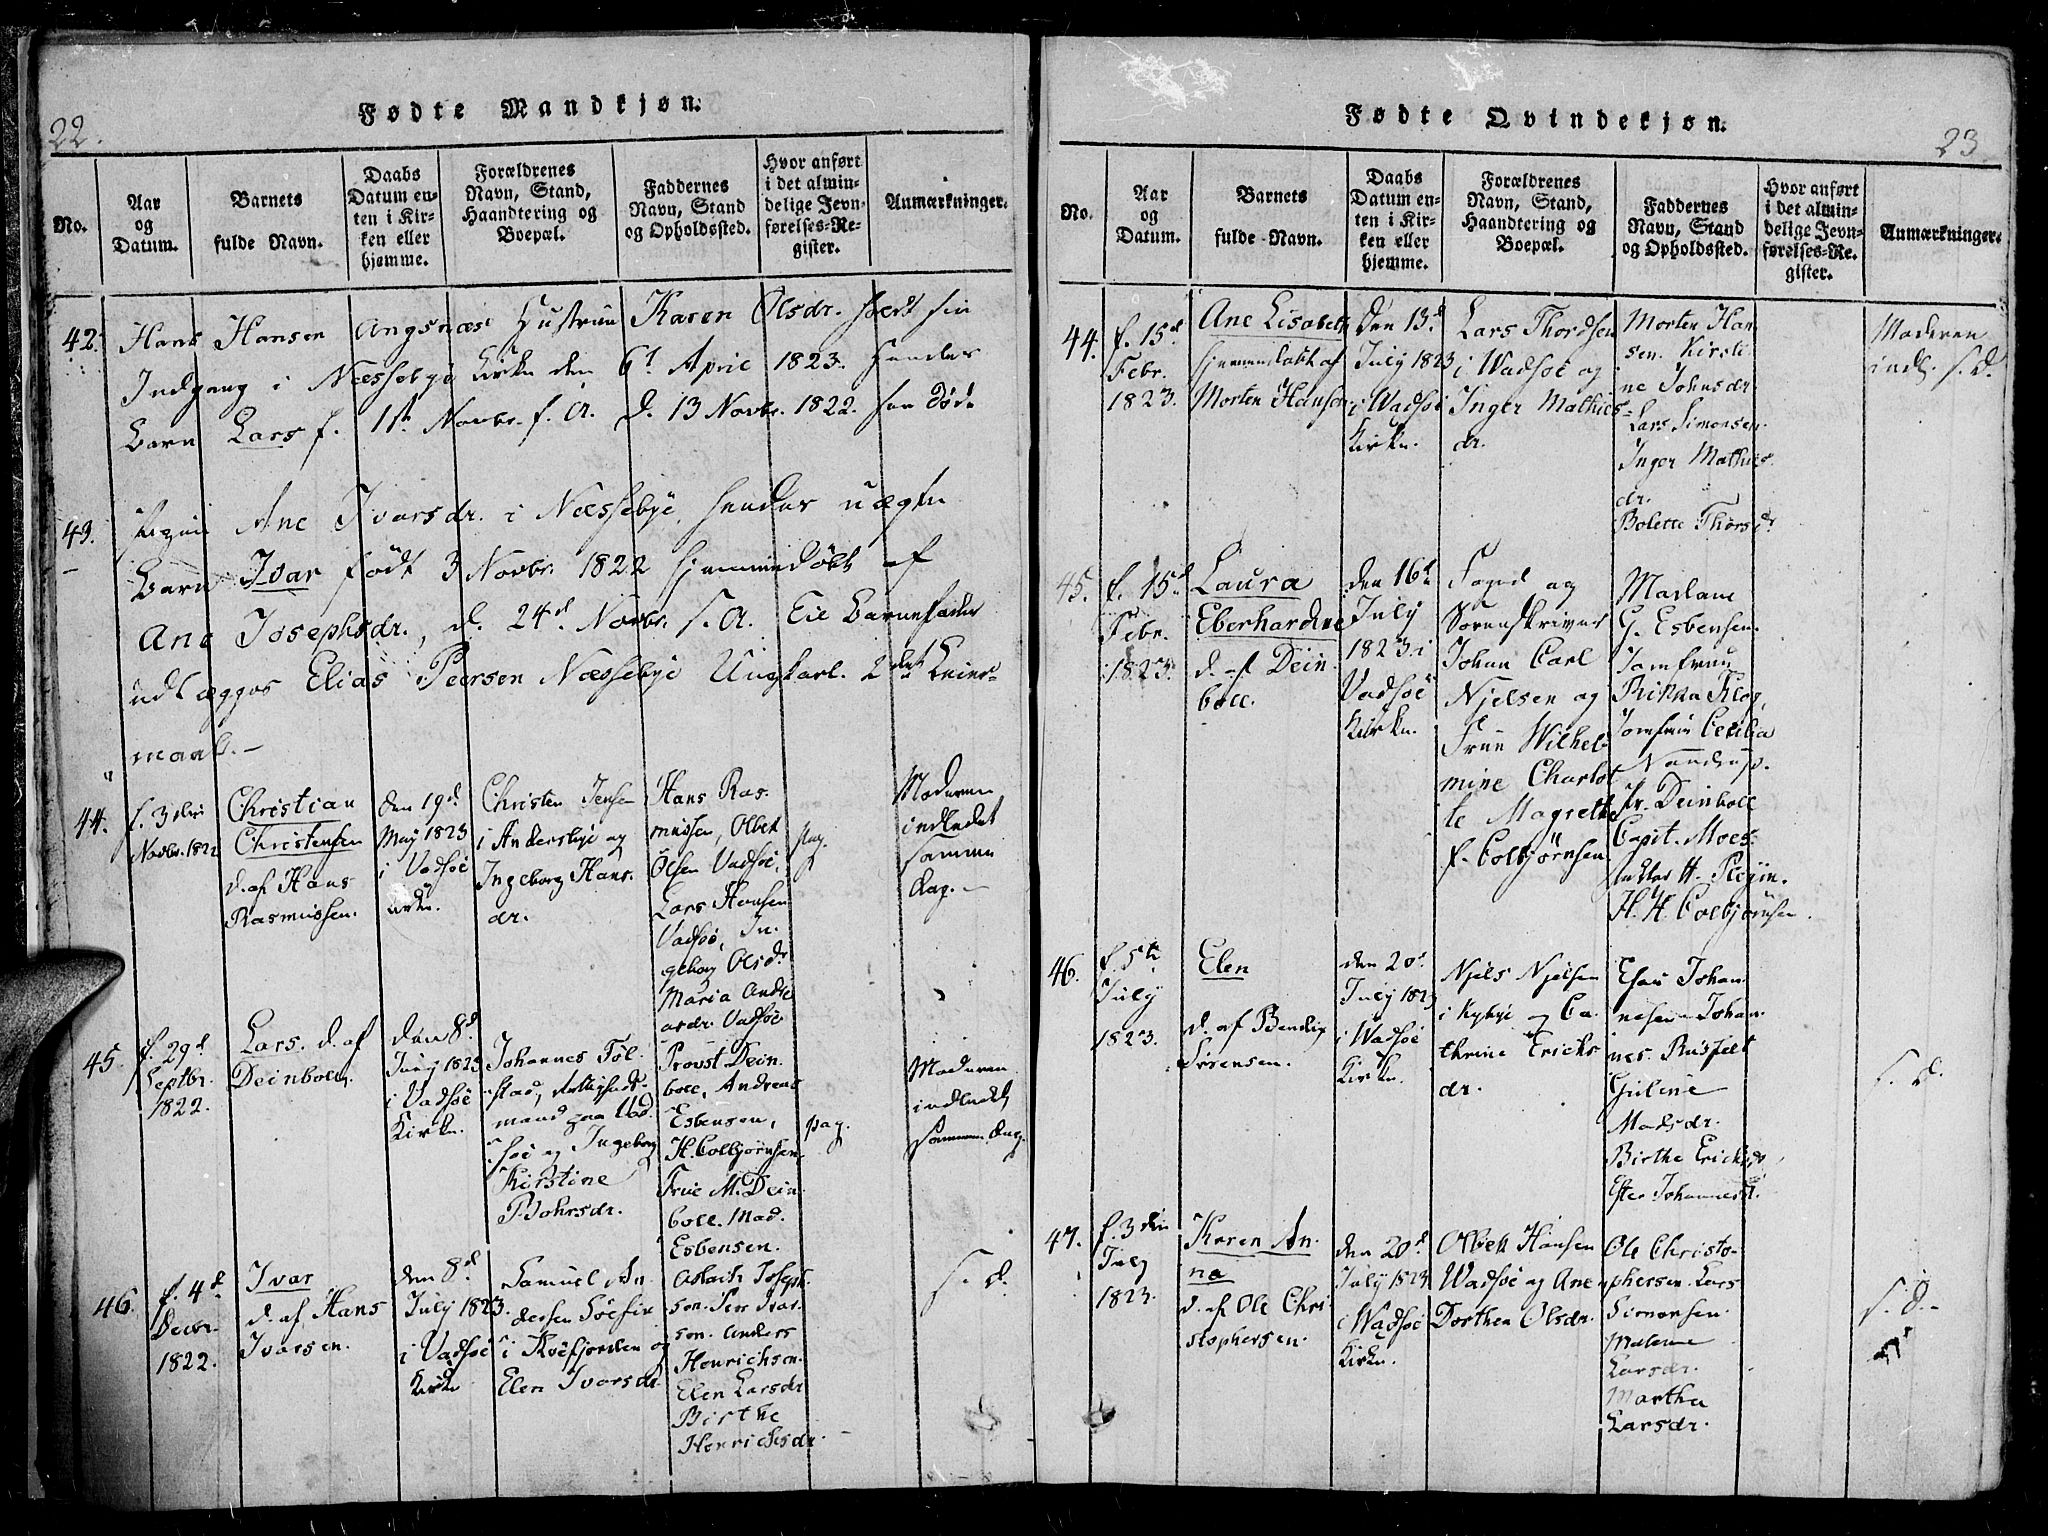 22.
Fødte Mandkjøn.
No.
Aar
og
Datum.
Barnets
fulde Navn.
Daabs
Datum en-
ten i Kir-
ken eller
hjemme.
Forældrenes
Navn, Stand,
Haandtering og
Boepæl.
Faddernes
Navn, Stand
og Opholdssted.
Hvor anført
i det almin-
delige Jevn-
førelses-Re-
gister.
Anmærkninger.
42.
Hans Hansen Angsnæs Hustrue Karen Olsdr. holdt sin
Indgang i Næssebye Kirke den 6t April 1823. Hendes
Barn Lars f. 1ste Novbr. f. A. d. 13 Novbr. 1822. døde
43.
Pigen Ane Ivarsdr. i Næssebye, hendes uægte
Barn Ivar født 3 Novbr. 1822 hjemmedøbt af
Ane Josephsdr., d. 24d Novbr. s. A. Til Barnefader
udlægges Elias Peersen Næssebye Ungkarl. 2det Leier-
maal.-
44.
f. 3die
Novbr. 1822
Christian
Christensen
d. af Hans
Rasmussen.
den 19d
May 1823
i Vadsøe
Kirke.
Christen Jensen
i Andersbye og
Ingeborg Hans-
dr.
Hans Ras-
mussen, Olbet
Olsen Vadsøe,
Lars Hansen
Vadsøe, In-
geborg Olsdr
Maria Andre
asdr. Vadsøe
pag.
Moderen
indledet
samme
Dag.-
45.
f. 29d
Septbr.
1822.
Lars. d. af
Deinboll.
den 8d
July 1823
i Vadsøe
Kirke.
Johannes Føl-
stad,
mand paa Vad-
søe og Ingeborg
Kirstine
Bohrsdr.
Provst Dein-
boll, Andreas
Esbensen,
H. Colbjørnsen
Frue M. Dein-
boll. Mad.
Esbensen.
pag.
Moderen
indledet
samme Dag.
46.
f. 4d
Decbr.
1822.
Ivar
d. af Hans
Ivarsen.
den 8d
July 1823.
i Vadsøe
Kirke
Samuel An-
dersen Søefin
i Køefjorden og
Elen Ivarsdr.
Aslach Joseph-
sen. Per Ivar-
sen. Anders
Henrichsen.
Elen Larsdr
Birthe
Henrichsdr.
s. d.
Fødte Qvindekjøn.
23
No.
Aar
og
Datum.
Barnets
fulde Navn.
Daabs
Datum en-
ten i Kir-
ken eller
hjemme.
Forældrenes
Navn, Stand,
Haandtering og
Boepæl.
Faddernes
Navn, Stand
og Opholdssted.
Hvor anført
i det almin-
delige Jevn-
førelses-Re-
gister.
Anmærkninger.
44.
f. 15d
Febr.
1823.
Ane Lisabeth
hjemmedøbt af
Morten Hansen
den 13d
July 1823
i Wadsøe
Kirke.
Lars Thordsen
i Wadsøe og
Inger Mathies-
dr.
Morten Han-
sen. Kirsti-
ne Johnsdr
Lars Simonsen.
Inger Mathies-
dr.
Bolette Thorsdr
Moderen
indl. s. d.
45.
f. 15d
Febr.
1823.
Laura
Eberhardine
d. af Dein
boll.
den 16d
July
1823 i
Vadsøe
Kirke.
Foged og
Sorenskriver
Johan Carl
Nielsen og
Frue Wilhel-
mine Charlot
te Magrethe
f. Colbjørnsen
Madame
G. Esbensen.
Jomfrue
Rikka Klog,
Jomfrue Cecilia
Nandrup.
Pr. Deinboll
Capit. Moes.
H. H. Colbjørnsen.
46.
f. 5te
July
1823.
Elen
d. af Bendix
Sørensen.
den 20d
July 1823
i Wadsøe
Kirke.
Niels Nielsen
i Kybye og Ca-
thrine Erichs
dr.
Esau Johan-
nesen Johan-
nes. Rusfelt
Guline
Madsdr.
Birthe Erichsdr
Ester Johannesdr.
s. d.
47.
f. 3die
July
1823.
Karen An-
na
d. af Ole Chri
stophersen.
den 20d
July 1823
i Wadsøe
Kirke.
Olbett Hansen
Wadsøe og Ane
Dorthea Olsdr.
Ole Christo-
phersen. Lars
Simonsen.
Malene
Larsdr.
Martha
Larsdr.
s. d.-